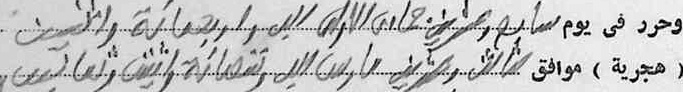 وحرد فى يوم سابع وعشرين جمادى الأولى الف واربعمائة واثنين
( هجرية ) موافق ثالث وعشرين مارس الف وتسعمائة واثنين وثمانين